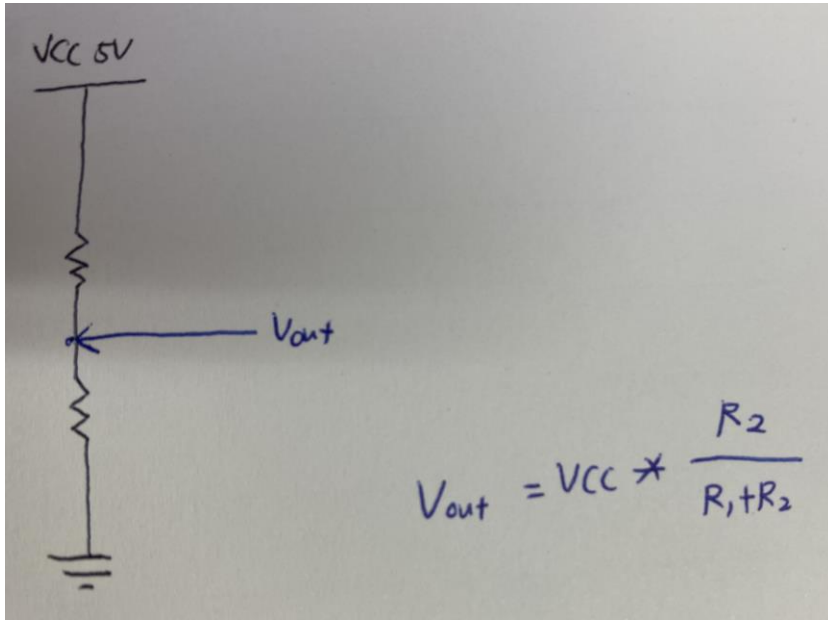 VCC 5V
Vout
Vout = VCC * R2 / R1+R2